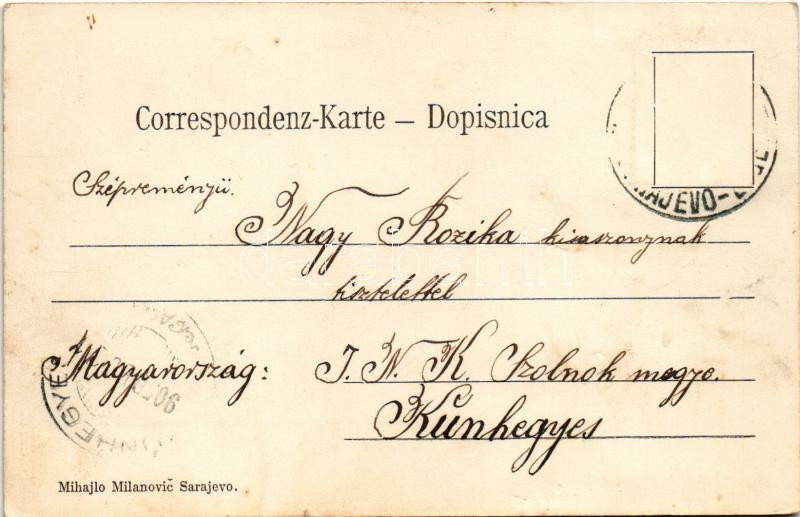 Correspondenz-Karte – Dopisnica
Szépreményü.
Nagy Rozika kisaszonynak
tisztelettel
Magyarország: J. N. K. Szolnok megye.
Kunhegyes
Mihajlo Milanovič Sarajevo.